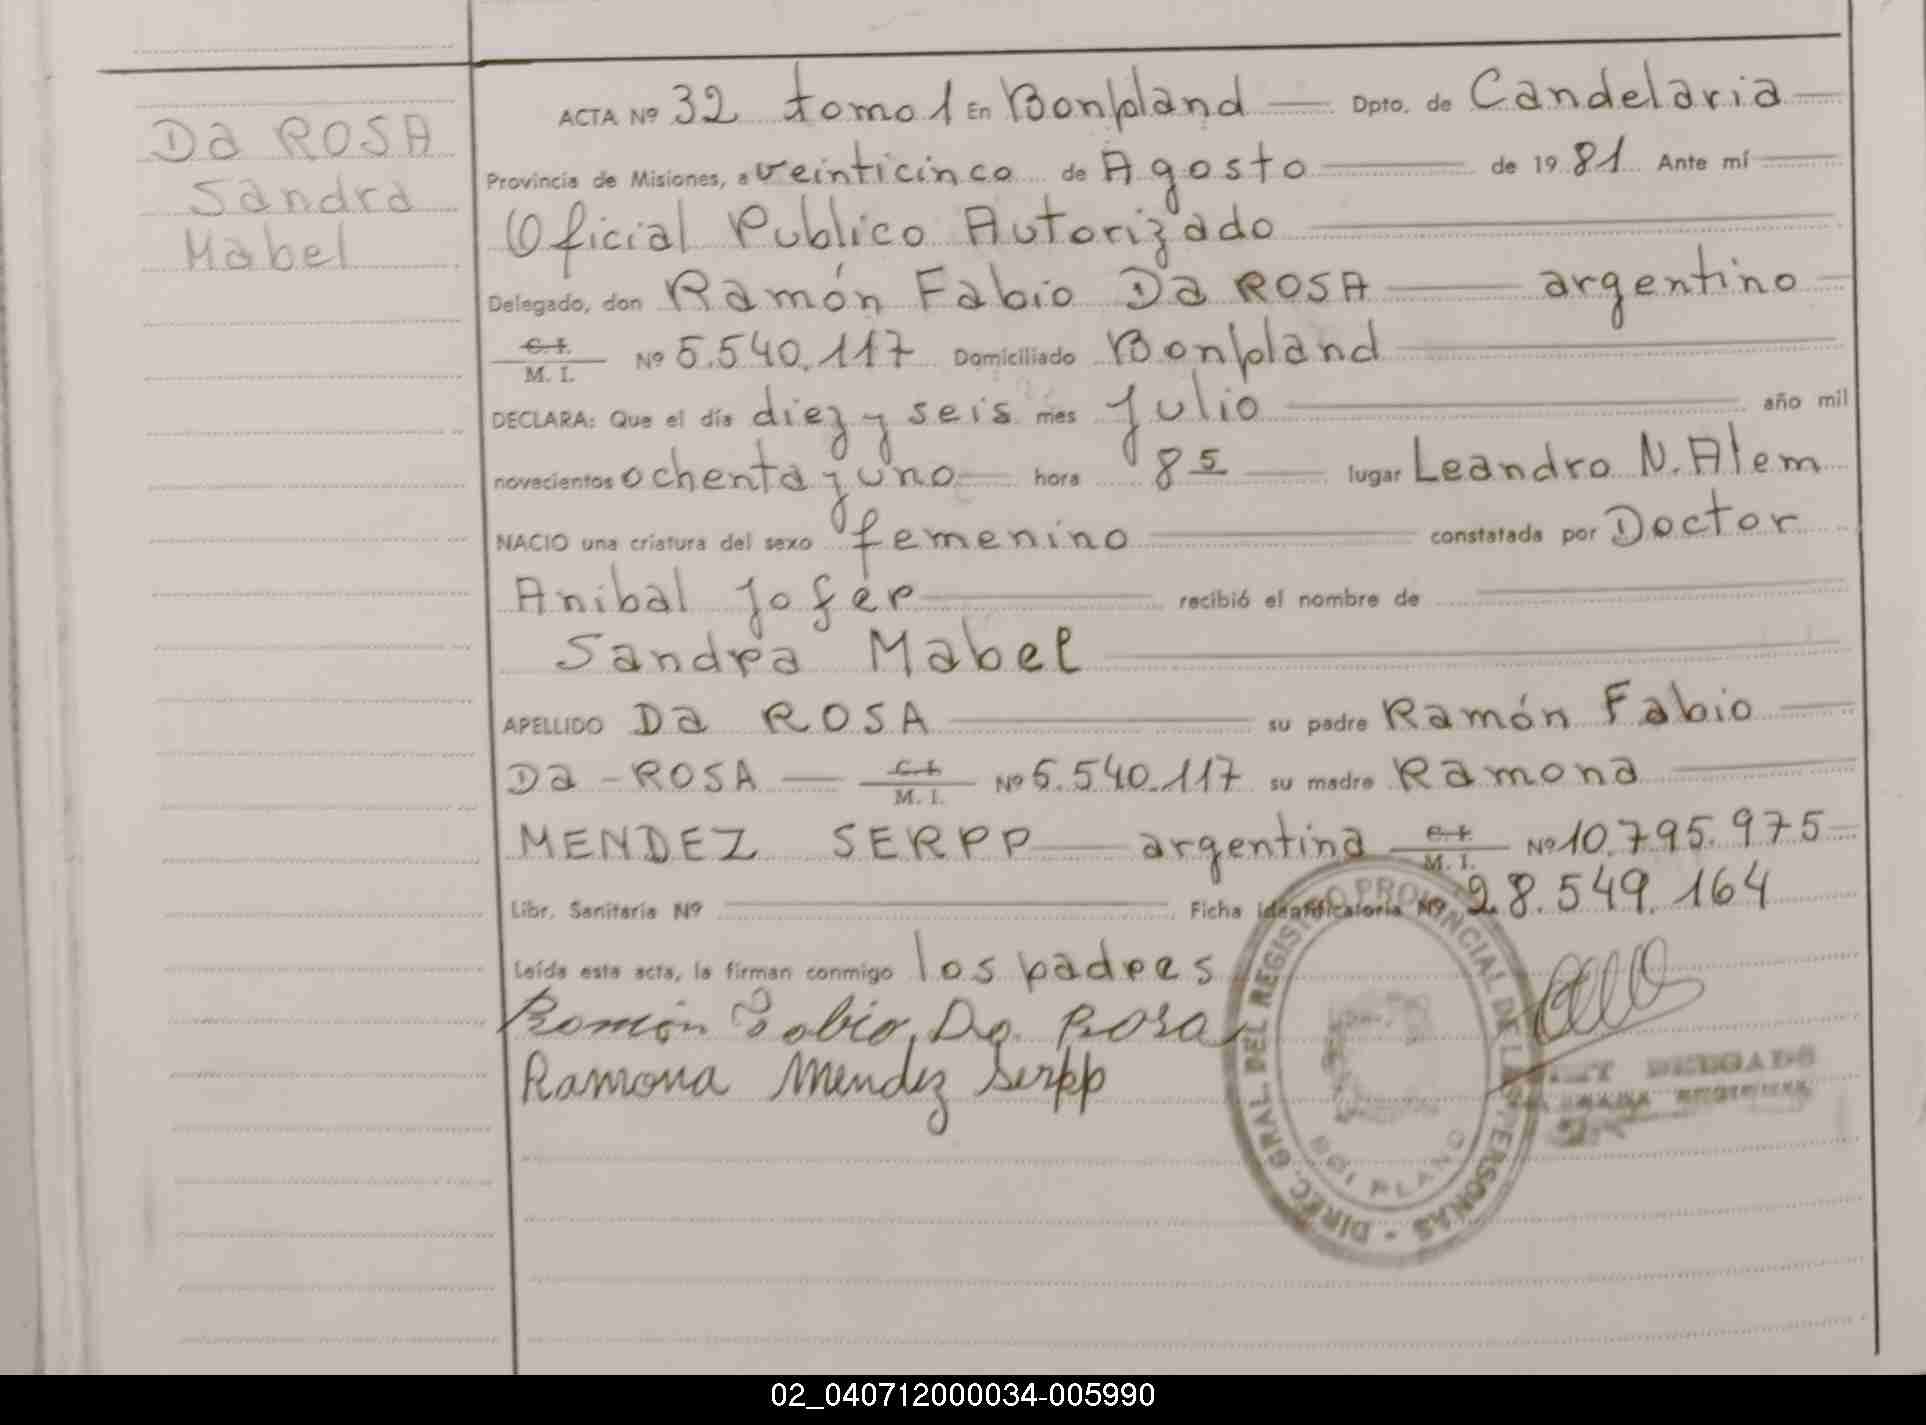 Da ROSA
Sandra
Mabel
ACTA Nº 32 tomo 1 En Bonpland Dpto. de Candelaria
Provincia de Misiones, a veinticinco de Agosto de 19 81 Ante mí
Oficial Publico Autorizado
Delegado, don Ramón Fabio Da ROSA argentino
C.I. M. I. Nº 5.540.117 Domiciliado Bonpland
DECLARA: Que el día diez y seis mes Julio año mil
novecientos ochenta y uno hora 8 5 lugar Leandro N. Alem
NACIO una criatura del sexo femenino constatada por Doctor
Anibal Jofér recibió el nombre de
Sandra Mabel
APELLIDO Da ROSA su padre Ramón Fabio
Da - ROSA C.I. M. I. Nº 5.540.117 su madre Ramona
MENDEZ SERPP argentina C.I. M. I. Nº 10.795.975
Libr. Sanitaria Nº Ficha Identificatoria Nº 28.549.164
Leída esta acta, la firman conmigo los padres
Ramón Fabio Da Rosa
Ramona Mendez Serpp
DIREC. GRAL. DEL REGISTRO PROVINCIAL DE LAS PERSONAS -
02_040712000034-005990